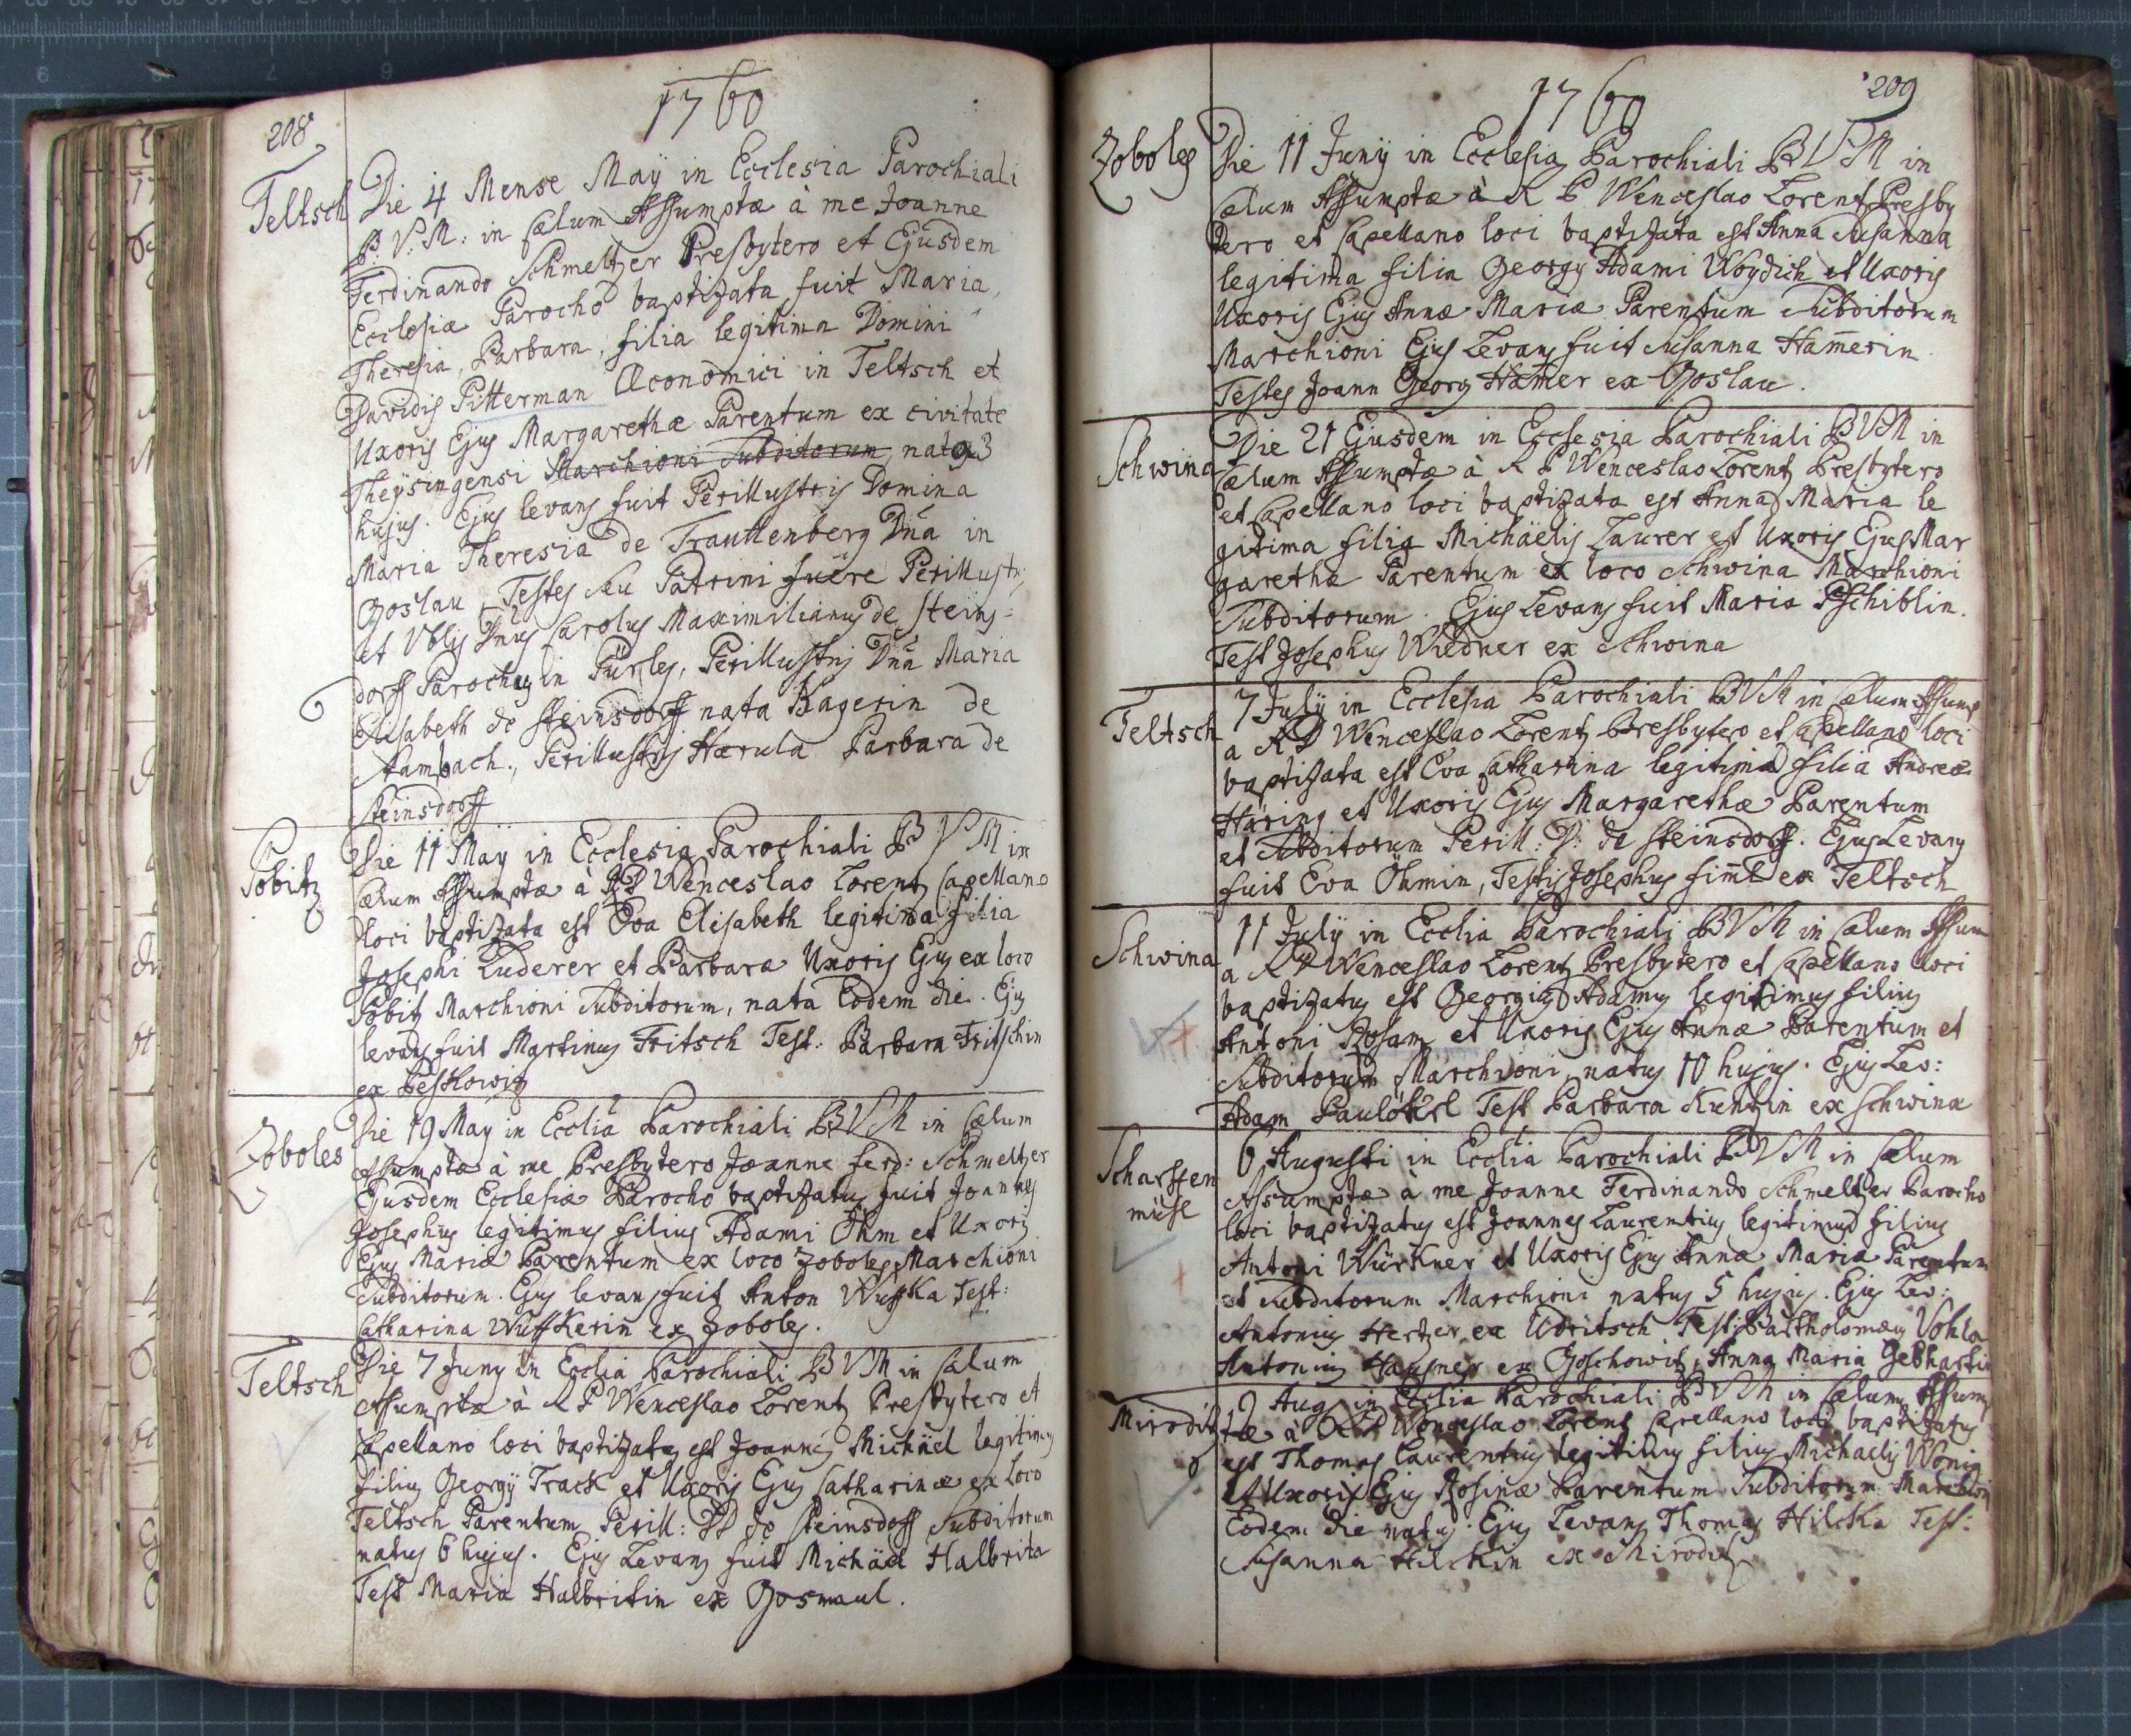 208
1760
Teltsch
Die 4 Mense Maÿ in Ecclesia Parochiali
B: V: M: in Cælum Assumptæ à me Joanne
Ferdinando Schmeltzer Presbytero et Ejusdem
Ecclesiæ Parocho baptizata fuit Maria,
Theresia, Barbara, filia legitima Domini
Davidis Pitterman Œconomici in Teltsch et
Uxoris Ejus Margarethæ Parentum ex civitate
Theysingensi Marchioni Subditorum nata 3
hujus. Ejus levans fuit Perillustris Domina
Maria Theresia de Trauttenberg Dña in
Goslau, Testes seu Patrini fuêre Perillustris
et Nblis Dñus Carolus Maximilianus de Steins=
dorff Parochus in Pürles, Perillustris Dña Maria
Elisabeth de Steinsdorff nata Kagerin de
Stambach., Perillustris Hærula Barbara de
Steinsdorff
Pobitz
Die 11 Maÿ in Ecclesia Parochiali B V M in
Cælum Assumptæ à R P Wenceslao Lorentz Capellano
loci baptizata est Eva Elisabeth legitima filia
Josephi Luderer et Barbaræ Uxoris Ejus ex loco
Pobitz Marchioni Subditorum, nata Eodem die. Ejus
levans fuit Martinus Fritsch Test: Barbara Fritschin
ex Peshlowitz
Zoboles
Die 19 May in Ecclia Parochiali B V M in Cælum
Assumptæ à me Presbytero Joanne Ferd: Schmeltzer
Ejusdem Ecclesiæ Parocho baptizatus fuit Joannes
Josephus legitimus filius Adami Öhm et Uxoris
Ejus Mariæ Parentum ex loco Zoboles Marchioni
Subditorum. Ejus levans fuit Anton Wuffka Test:
Catharina Wuffkerin ex Zoboles.
Teltsch
Die 7 Juny in Ecclia Parochiali B V M in Cælum
Assumptæ à R P Wenceslao Lorentz Presbytero et
Capellano loci baptizatus est Joannes Michäel legitimus
filius Georgÿ Track et Uxoris Ejus Catharinæ ex loco
Teltsch Parentum Perill: D de Steinsdoff Subditorum
natus 6 hujus. Ejus Levans fuit Michäel Halbrita
Test Maria Halbritin ex Gosmaul.
1760
209
Zoboles
Die 11 Junÿ in Ecclesia Parochiali B V M in
Cælum Assumptæ à R P Wenceslao Lorentz Presby
tero et Capellano loci baptizata est Anna Susanna
legitima filia Georgy Adami Woydich et Uxoris
Uxoris Ejus Annæ Mariæ Parentum Subditorum
Marchioni Ejus Levans fuit Susanna Ham̄erin
Testes Joann Georg Ham̄er ex Goslau.
Schwina
Die 21 Ejusdem in Ecclesia Parochiali B V M in
Cælum Assumptæ à R P Wenceslao Lorentz Presbytero
et Capellano loci baptizata est Anna Maria le
gitima filia Michäelis Laurer et Uxoris Ejus Mar
garethæ Parentum ex loco Schwina Marchioni
Subditorum. Ejus Levans fuit Maria Pschiblin.
Test Josephus Wiedner ex Schwina
Teltsch
7 Julÿ in Ecclesia Parochiali B V M in Cælum Assump
a R P Wenceslao Lorentz Presbytero et Capellano loci
baptizata est Eva Catharina legitima filia Andreæ
Häring et Uxoris Ejus Margarethæ Parentum
et Subditorum Perill: D: de Steinsdorff. Ejus Levans
fuit Eva Öhmin, Testis Josephus Sim̄l ex Teltsch
Schwina
11 Julÿ in Ecclia Parochiali B V M in Cælum Assum
a R P Wenceslao Lorentz Presbytero et Capellano loci
baptizatus est Georgius Adamus legitimus filius
Antoni Rosam et Uxoris Ejus Annæ Parentum et
Subditorum Marchioni natus 10 hujus. Ejus Lev:
Adam Test Barbara Kuntzin ex Schwina
Scharffen
mühl
6 Augusti in Ecclia Parochiali B V M in Cælum
Assumptæ à me Joanne Ferdinando Schmeltzer Parocho
loci baptizatus est Joannes Laurentius legitimus filius
Antoni Würkner et Uxoris Ejus Annæ Mariæ Parentum
et Subditorum Marchioni natus 5 hujus. Ejus Lev:
Antonius Hertzer ex Udritsch Test: Bartholomæus Vohla
Antonius Hausner ex Goschowitz, Anna Maria Gebhartin
Miroditz
9 Aug in Ecclia Parochiali B V M in Cælum Assum
tæ à R P Wenceslao Lorentz Capellano loci baptizatus
est Thomas Laurentius legitimus filius Michaelis Wönig
et Uxoris Ejus Rosinæ Parentum Subditorum Marchioni
Eodem die natus. Ejus Levans Thomas Hilcka Test:
Susanna Hilckin ex Miroditz